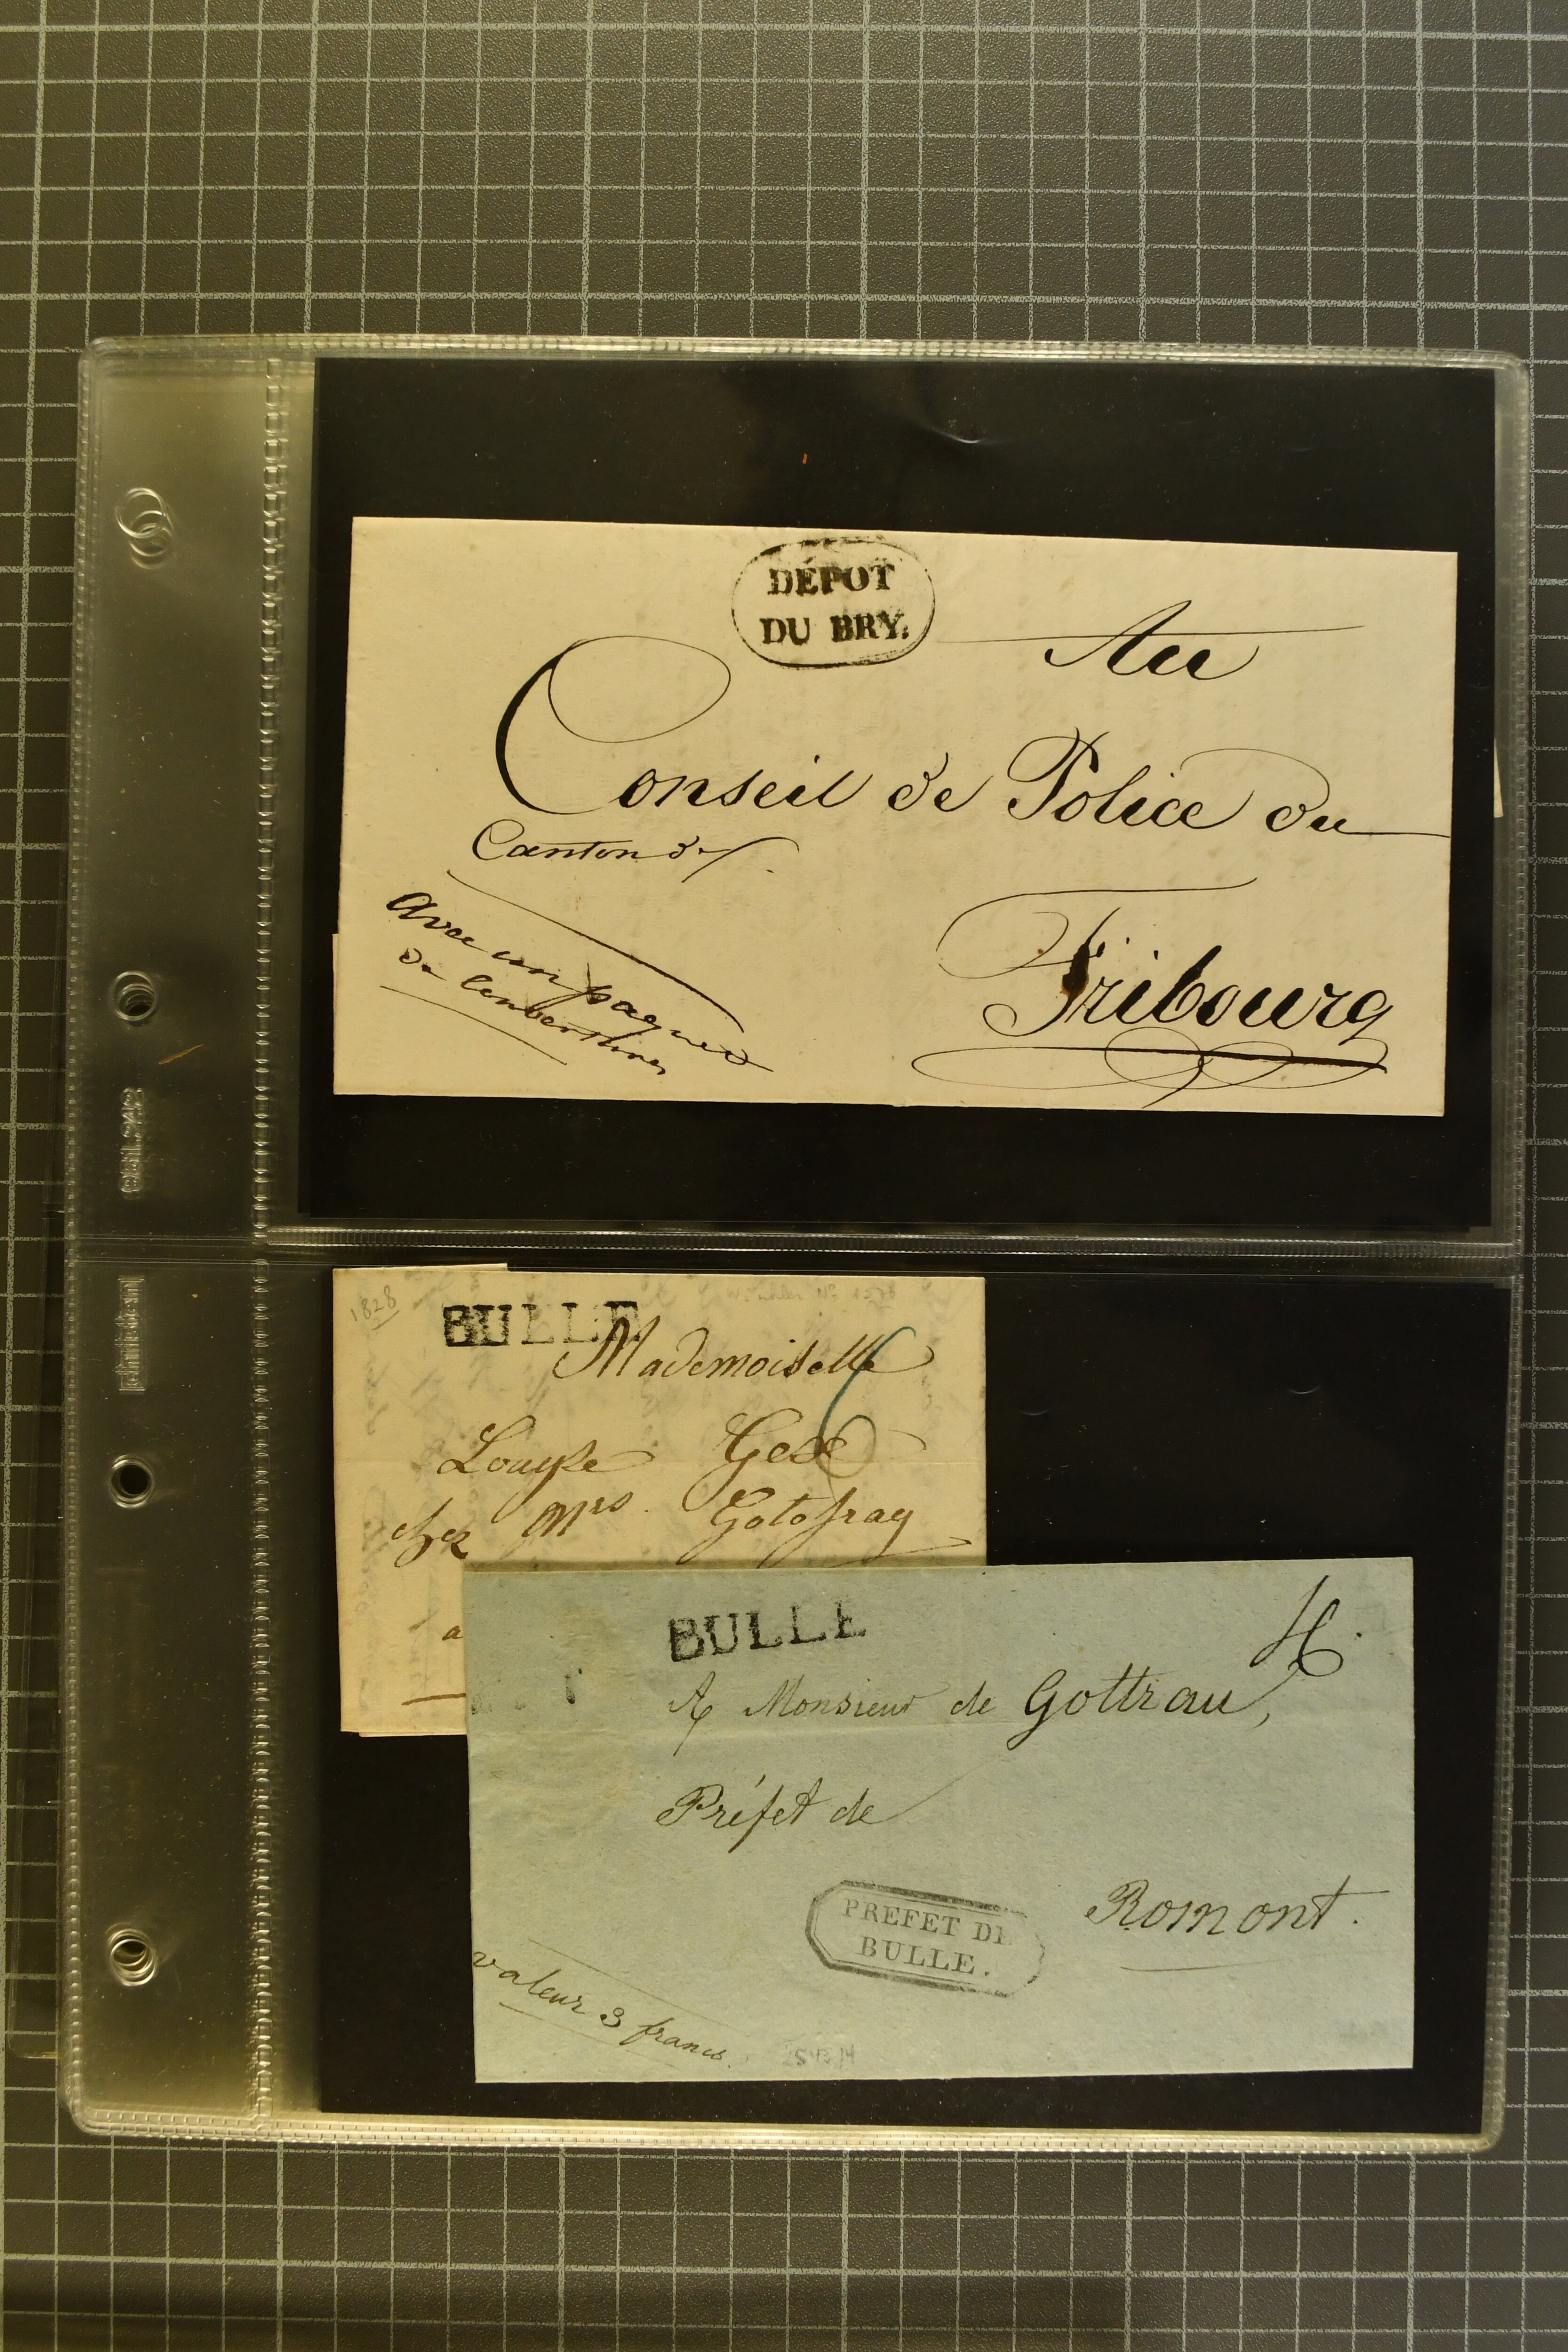 DÉPOT
DU BRY.
Au
Conseil de Police du
Canton de
Avec un paquet
de
Fribourg
1828
BULLE
Mademoiselle
6
Louyse Gex
chez Mrs. Gotofrey
a
BULLE
A Monsieur de Gottrau,
Préfet de
Romont.
PREFET DE
BULLE.
valeur 3 francs.